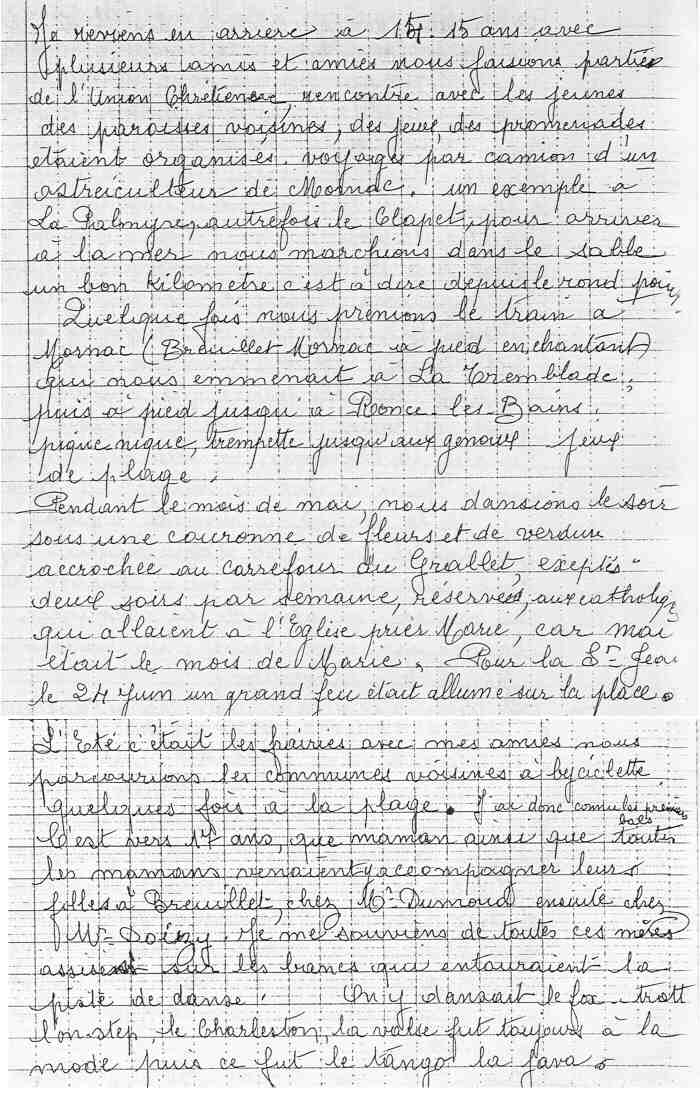 Je reviens en arriere à 14. 15 ans avec
plusieurs amis et amies nous faisions parties
de l'Union Chrétienne, rencontre avec les jeunes
des paroisses voisines, des jeux, des promenades
étaient organisés. voyages par camion d'un
ostreiculteur de Mornac. un exemple à
La Palmyre, autrefois le Clapet, pour arriver
à la mer nous marchions dans le sable
un bon kilometre c'est à dire depuis le rond point
Quelque fois nous prenions le train à
Mornac (Breuillet Mornac à pied en chantant)
qui nous emmenait à La Tremblade,
puis à pied jusqu'à Ronce les Bains.
pique nique, trempette jusqu'aux genoux jeux
de plage.
Pendant le mois de mai, nous dansions le soir
sous une couronne de fleurs et de verdure
accrochée au carrefour du Grallet, exeptés
deux soirs par semaine, réservées, aux catholiq
qui allaient à l'Eglise prier Marie, car mai
était le mois de Marie. Pour la St Jean
le 24 Juin un grand feu était allumé sur la place.
L'Eté c'était les frairies avec mes amies nous
parcourions les communes voisines à byciclette
quelques fois à la plage. J'ai donc connu les premiers
bals
C'est vers 17 ans, que maman ainsi que toutes
les mamans venaient y accompagner leurs
filles à Breuillet, chez Mr Dumoud ensuite chez
Mr Doizy. Je me souviens de toutes ces mères
assises sur les bancs qui entouraient la
piste de danse. On y dansait le fox-trott
l'on-step, le Charleston, la valse fut toujours à la
mode puis ce fut le tango la java.